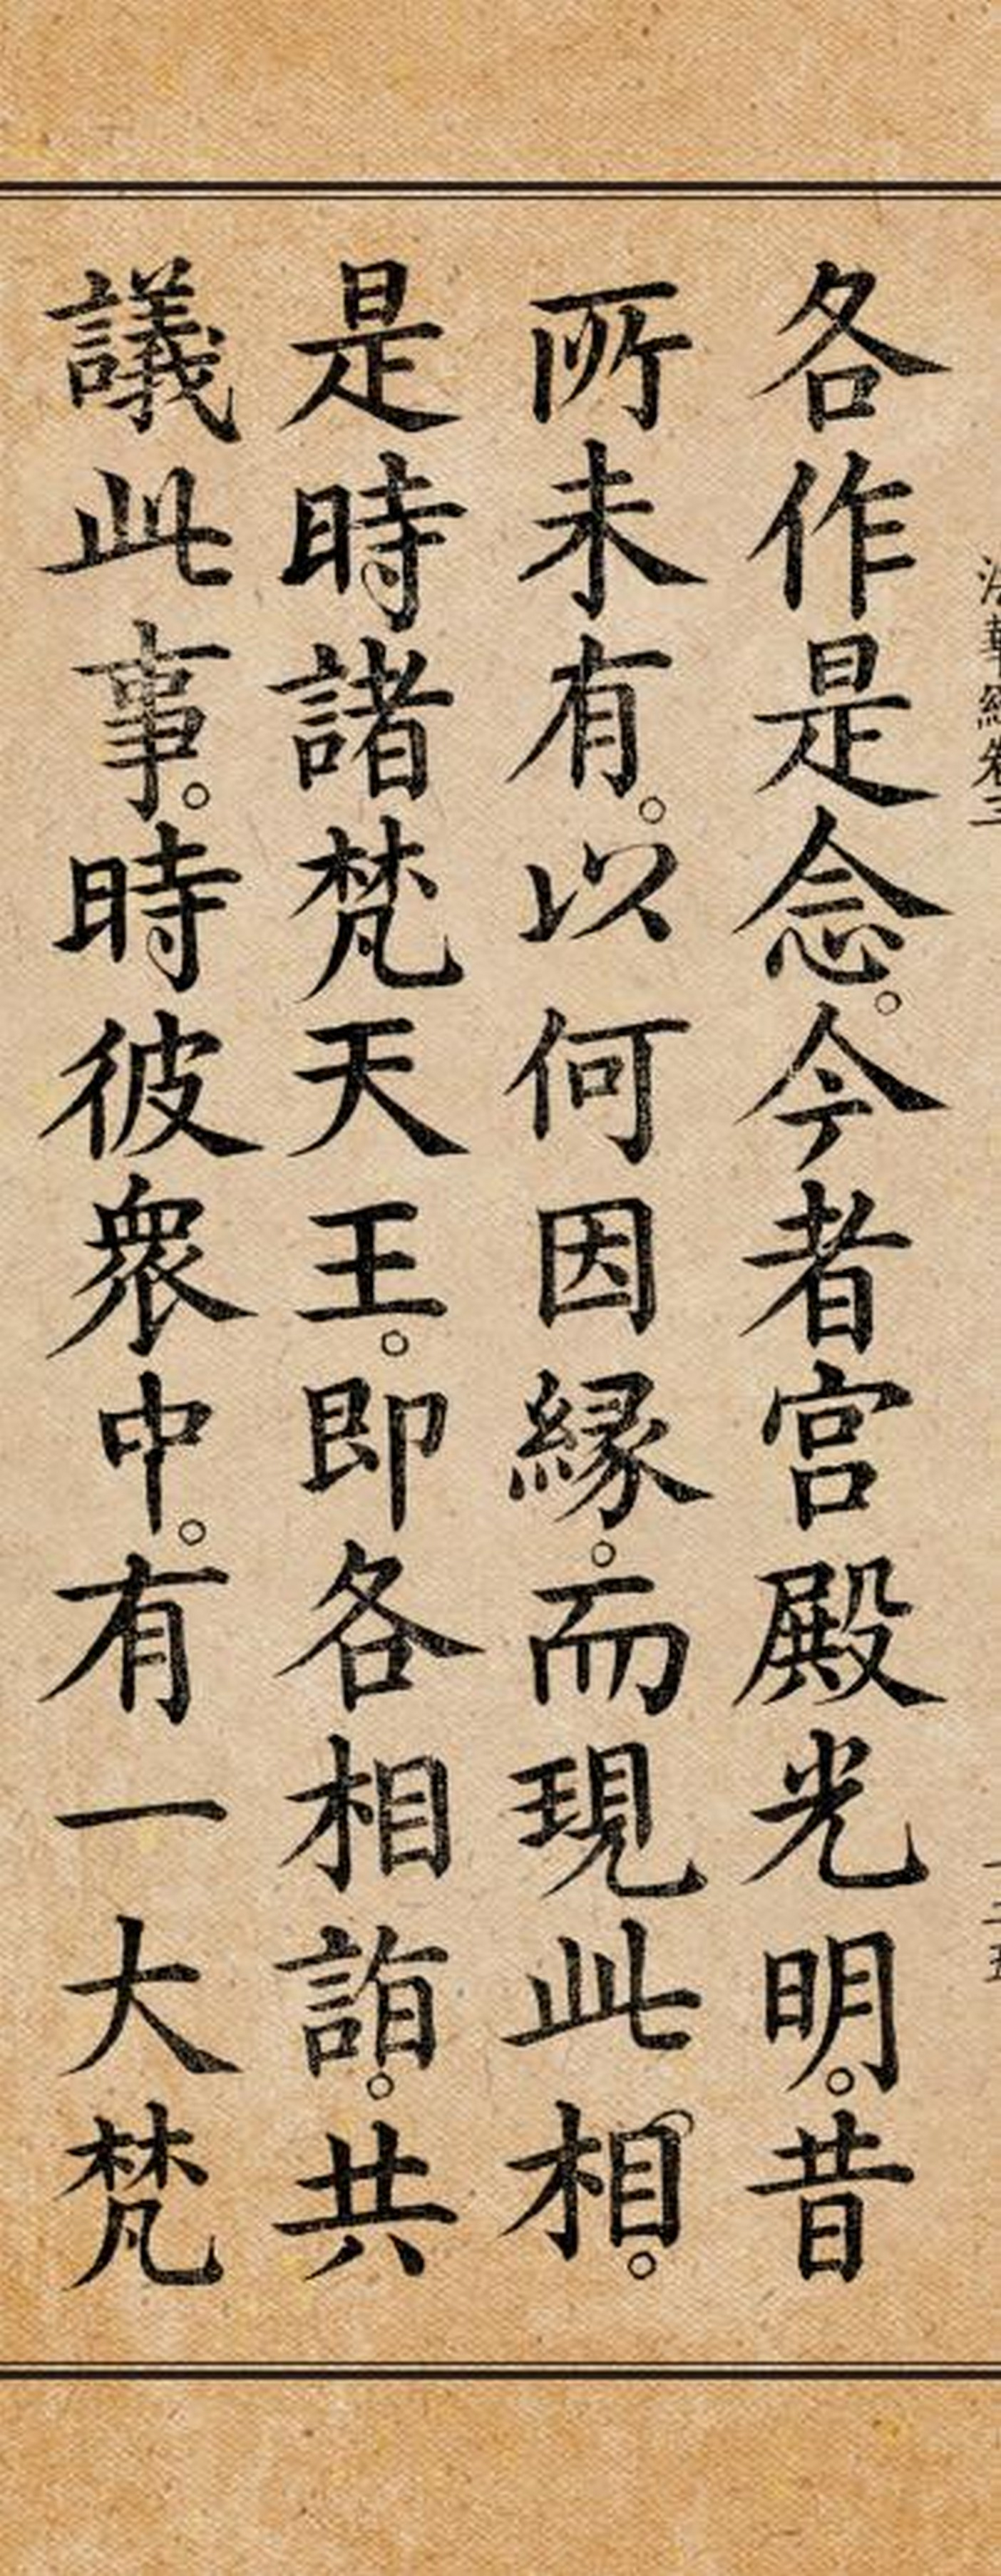 法華經卷三
各作是念。今者宮殿光明。昔
所未有。以何因緣。而現此相。
是時諸梵天王。即各相詣。共
議此事。時彼眾中。有一大梵